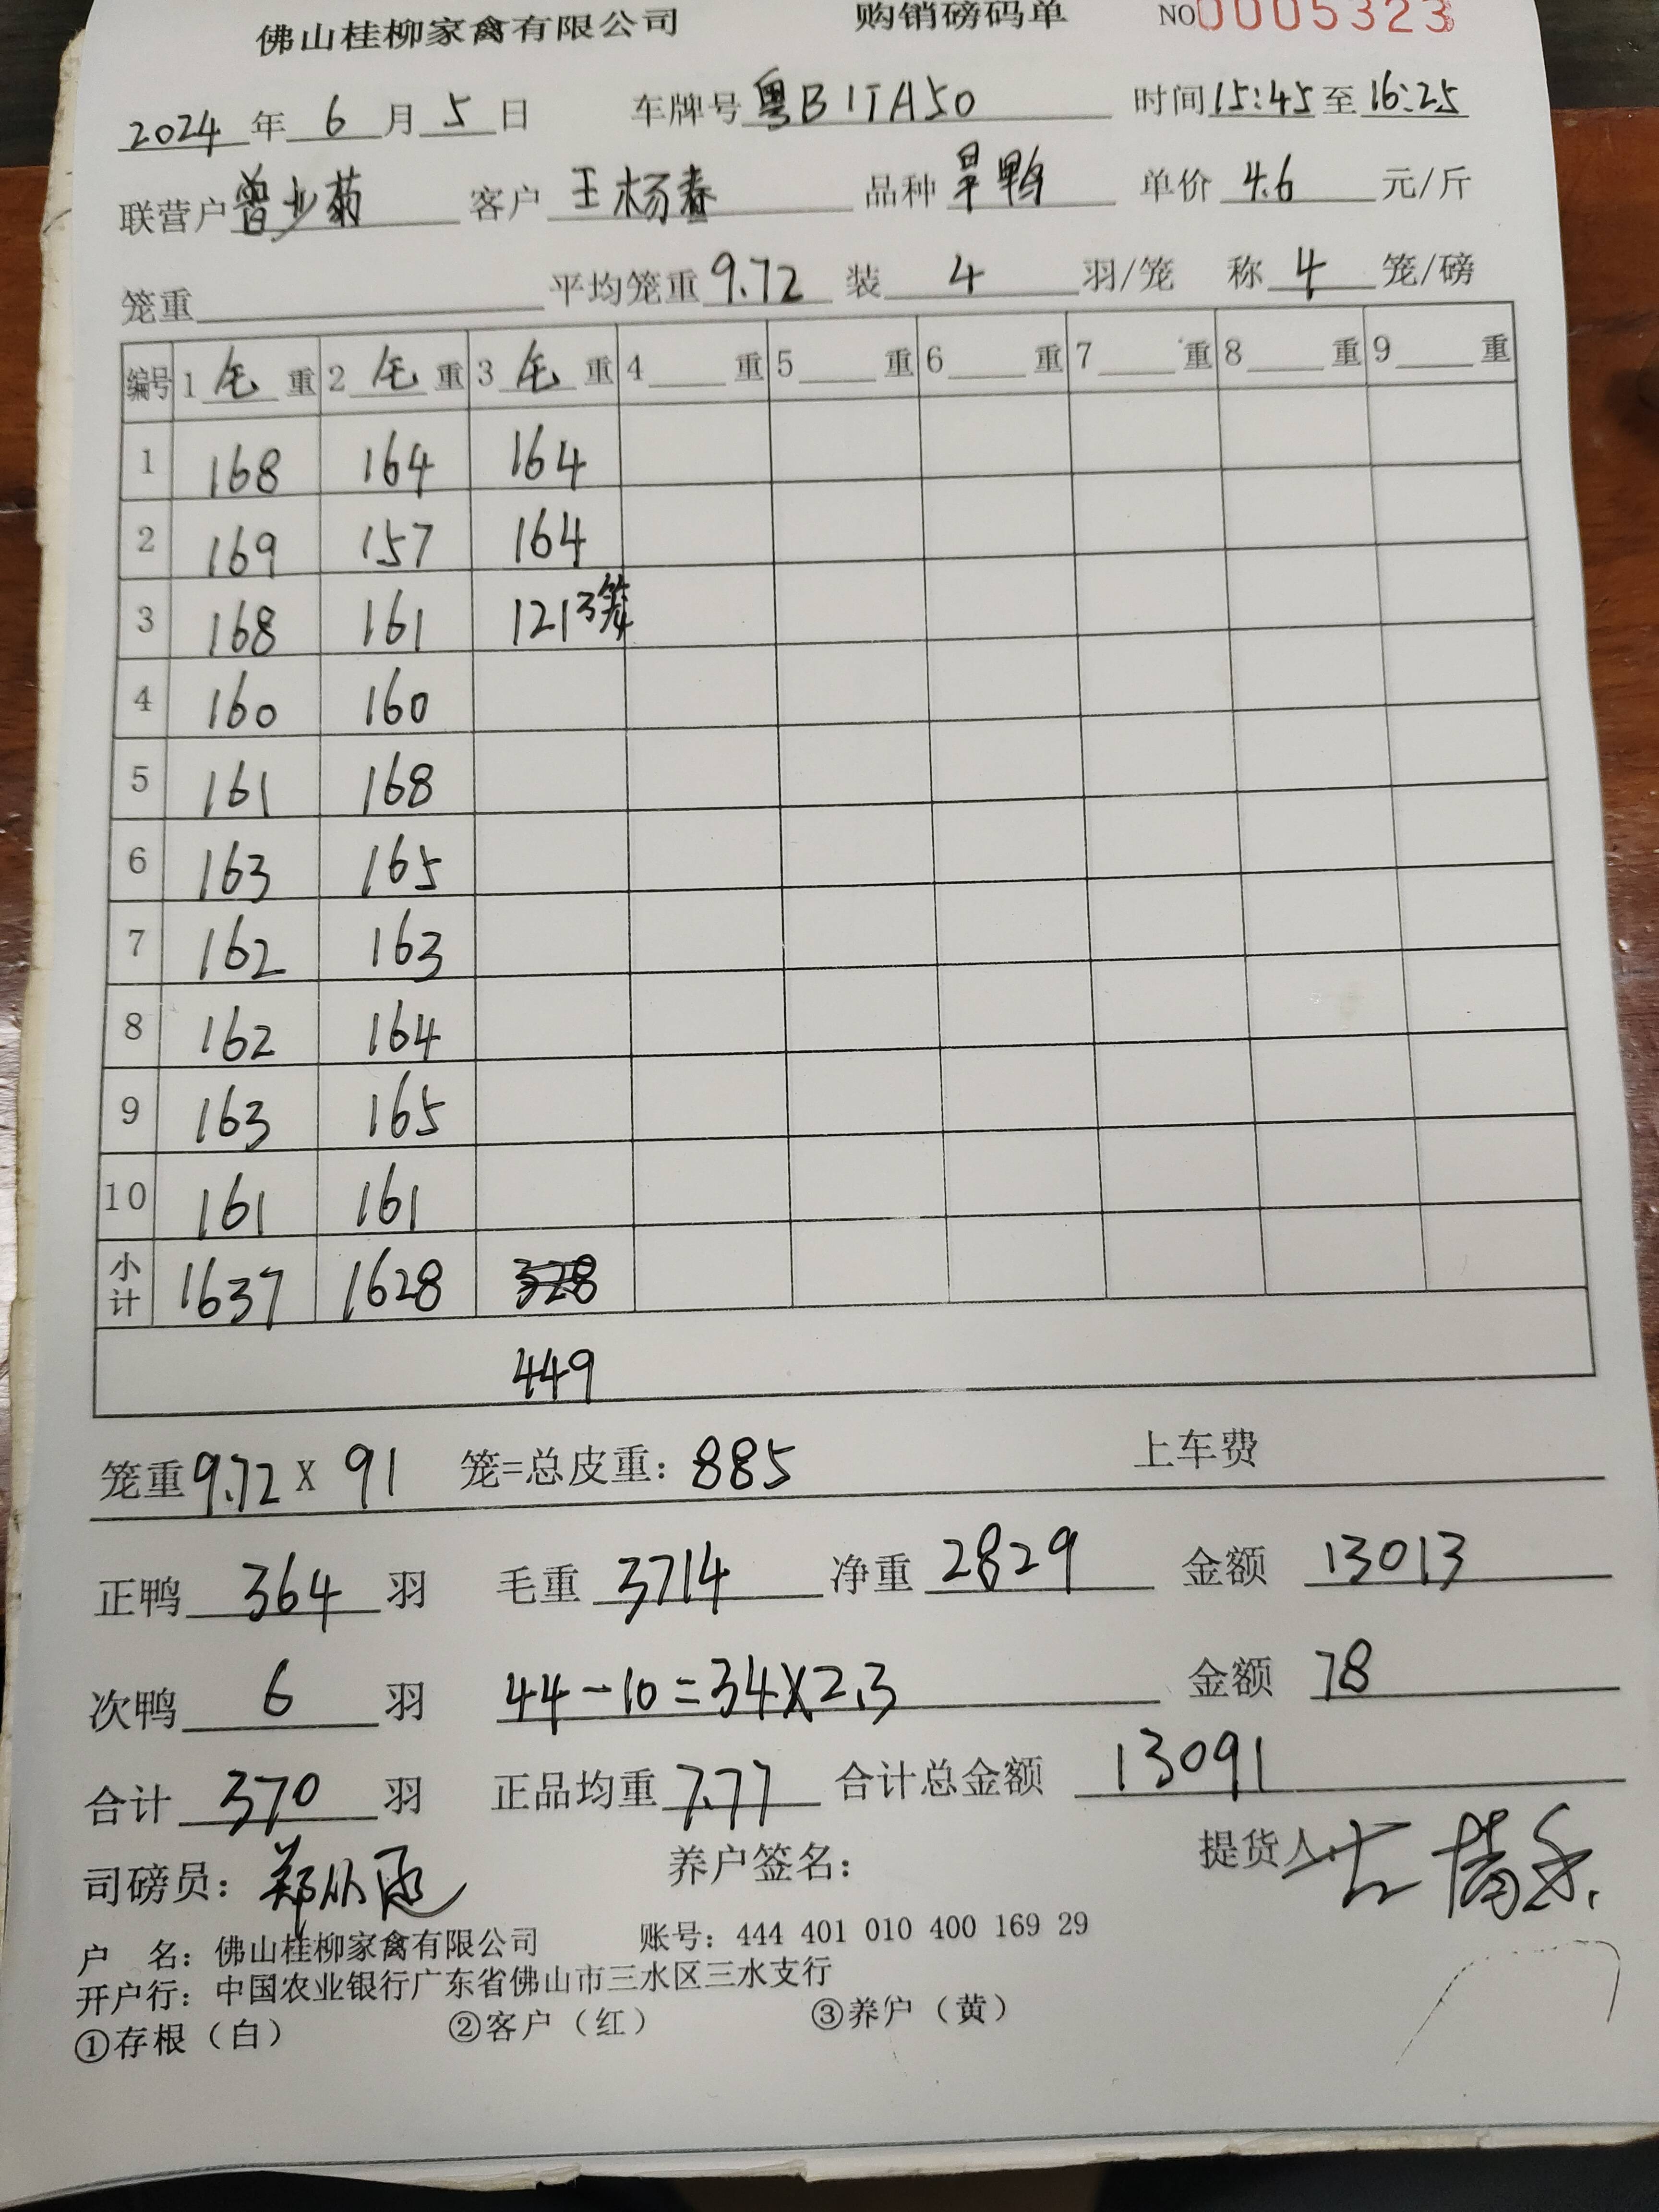 佛山桂柳家禽有限公司 购销磅码单 NO0005323
2024年6月5日 车牌号粤B1TA50 时间15:45至16:25
联营户曾少菊 客户王杨春 品种旱鸭 单价4.6元/斤
笼重 平均笼重9.72 装4羽/笼 称4笼/磅
编号 1毛重 2毛重 3毛重 4重 5重 6重 7重 8重 9重
1 168 164 164
2 169 157 164
3 168 161 121 3笼
4 160 160
5 161 168
6 163 165
7 162 163
8 162 164
9 163 165
10 161 161
小计 1637 1628 328
449
笼重9.72X91 笼=总皮重:885 上车费
正鸭364羽 毛重3714 净重2829 金额13013
次鸭6羽 44-10=34X2.3 金额78
合计370羽 正品均重7.77 合计总金额13091
司磅员: 养户签名: 提货人:
户 名:佛山桂柳家禽有限公司 账号:444 401 010 400 169 29
开户行:中国农业银行广东省佛山市三水区三水支行
①存根(白) ②客户(红) ③养户(黄)